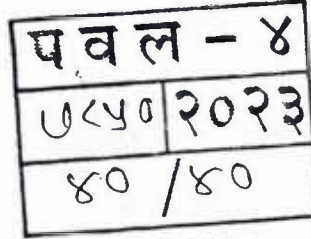 पवल - ४
७८५० २०२३
४० /४०